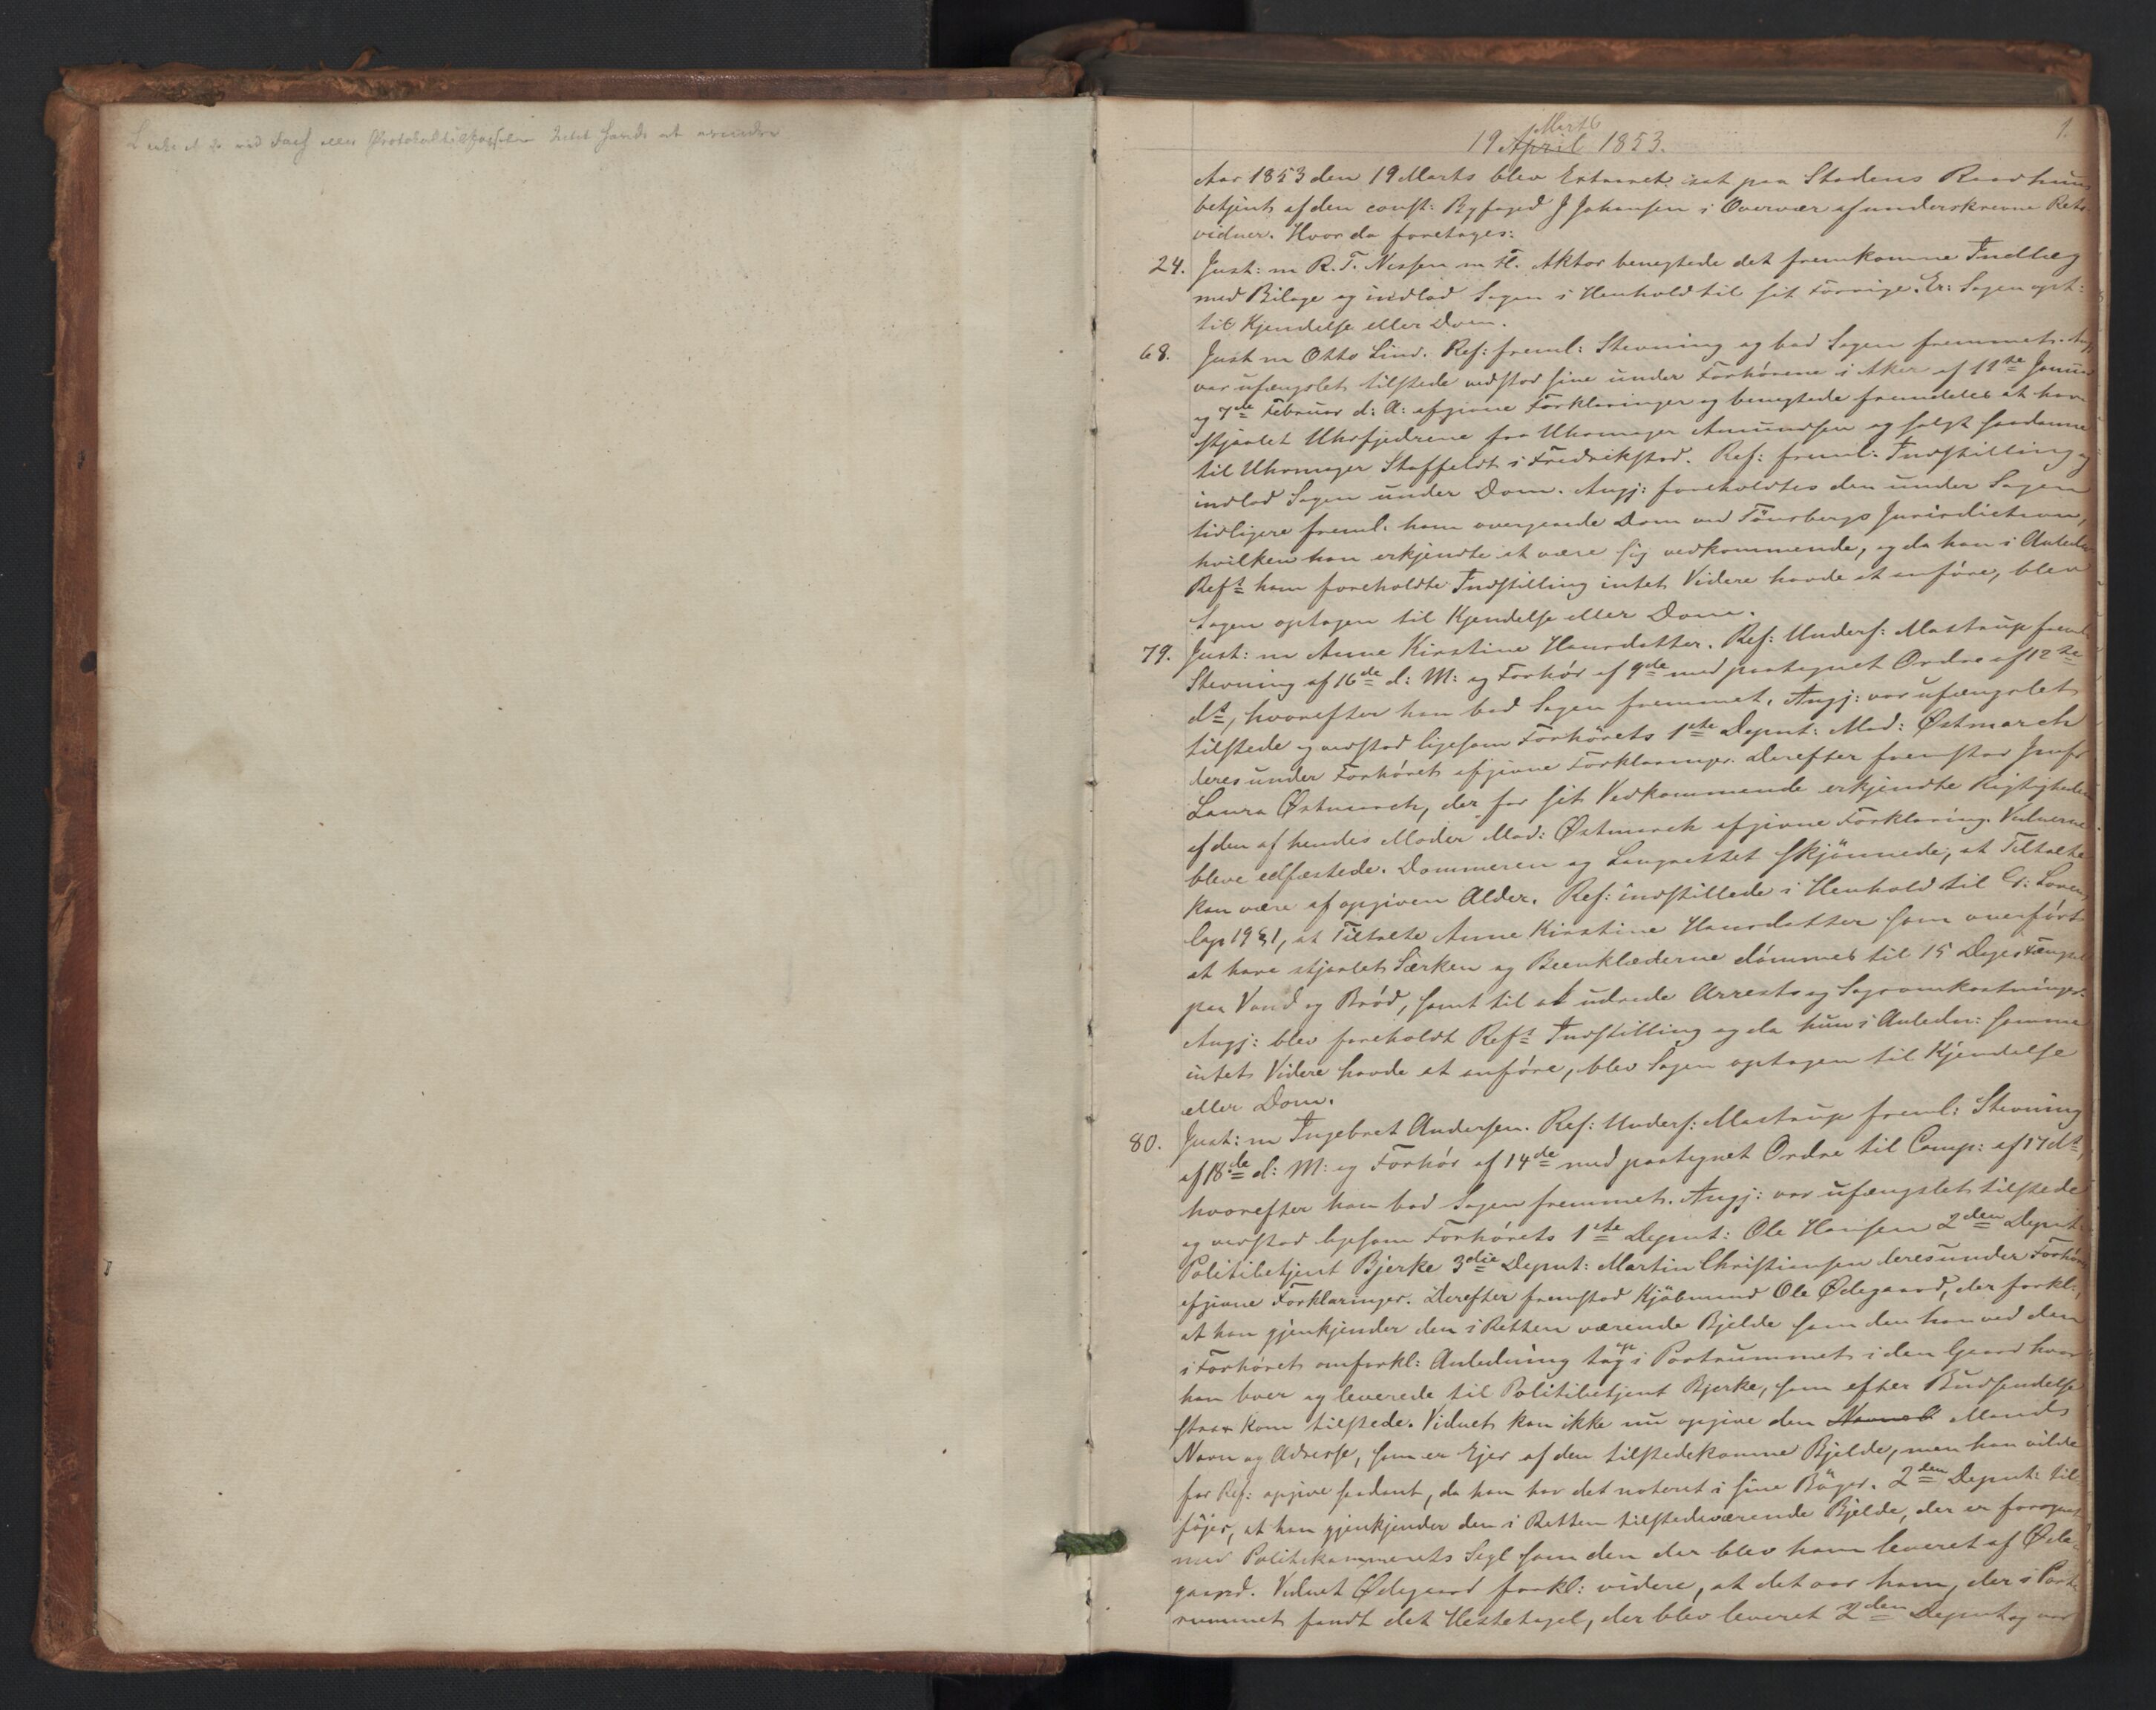 1.
Marts
19 April 1853.
Aar 1853 den 19 Marts blev Extraret sat paa Stadens Raadhuus
betjent af den const: Byfoged J Johansen i Overvær af underskrevne Rets-
vidner. Hvor da foretages:
24. Just: m R. T. Nissen m Fl. Aktor benegtede det fremkomne Indlæg
med Bilage og indlod Sagen i Henhold til sit Forrige. Er: Sagen opt:
til Kjendelse eller Dom.
68. Just m Otto Lind. Ref: freml: Stevning og bad Sagen fremmet. Ang
var ufængslet tilstede vedstod sine under Forhörene i Aker af 11te Januar
og 7de Februar d: A: afgivne Forklaringer og benegtede fremdeles at have
stjaalet Uhrfjedrene fra Uhrmager Amundsen og solgt saadanne
til Uhrmager Staffeldt i Fredrikstad. Ref: freml. Indstilling og
indlod Sagen under Dom. Angj: foreholdtes den under Sagen
tidligere freml. ham overgaaede Dom ved Tönsbergs Jurisdiction,
hvilken han erkjendte at være sig vedkommende, og da han i Anledn
Refs ham foreholdte Indstilling intet Videre havde at anföre, blev
Sagen optagen til Kjendelse eller Dom.
79. Just: m Anne Kirstine Hansdatter. Ref: Underf: Mastrup freml
Stevning af 16de d: M: og Forhör af 9de med paategnet Ordre af 12te
ds, hvorefter han bad Sagen fremmet. Angj: var ufængslet
tilstede og vedstod ligesom Forhörets 1ste Deput: Mad: Østmarch
deres under Forhöret afgivne Forklaringer. Derefter fremstod Jomfr
Laura Østmarch, der for sit Vedkommende erkjendte Rigtigheden
af den af hendes Moder Mad: Østmarch afgivne Forklaring. Vidnerne
bleve edfæstede. Dommeren og Laugrettet skjönnede, at Tiltalte
kan være af opgiven Alder. Ref: indstillede i Henhold til Cr: Loven
Cap 19 § 1, at Tiltalte Anne Kirstine Hansdatter som overfört
at have stjaalet Særken og Beenklæderne dömmes til 15 Dages Fængsel
paa Vand og Bröd, samt til at udrede Arrest og Sagsomkostninger.
Angj: blev foreholdt Refs Indstilling og da hun i Anledn: samme
intet Videre havde at anföre, blev Sagen optagen til Kjendelse
eller Dom.
80. Just: m Ingebret Andersen. Ref: Underf: Mastrup freml: Stevning
af 18de d: M: og Forhör af 14de med paategnet Ordre til Comp: af 17 ds,
hvorefter han bad Sagen fremmet. Angj: var ufængslet tilstede
og vedstod ligesom Forhörets 1ste Deput: Ole Hansen 2den Deput
Politibetjent Bjerke 3die Deput: Martin Christiansen deres under Forhör
afgivne Forklaringer. Derefter fremstod Kjöbmand Ole Ødegaard, der forkl:,
at han gjenkjender den i Retten værende Bjelde som den han ved den
i Forhöret omforkl: Anledning tog op i Portrummet i den Gaard hvor
han boer og leverede til Politibetjent Bjerke, som efter Budsendelse
strax kom tilstede. Vidnet kan ikke nu opgive den Navnet Mands
Navn og Adresse, som er Ejer af den tilstedekomne Bjelde, men han vilde
for Ref: opgive saadant, da han har det noteret i sine Böger. 2den Deput: til
föjer, at han gjenkjender den i Retten tilstedeværende Bjelde, der er forsynet
med Politikammerets Segl som den der blev ham leveret af Øde-
gaard. Vidnet Ødegaard forkl: videre, at det var ham, der i Port
rummet fandt det Hestetagel, der blev leveret 2den Deput og var